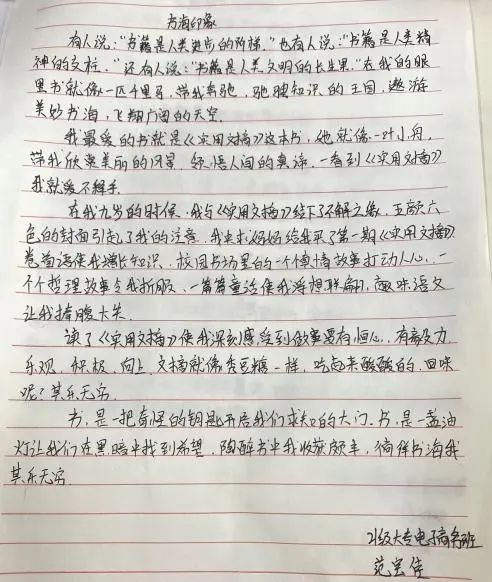 书海印象
有人说:"书籍是人类进步的阶梯."也有人说:"书籍是人类精
神的支柱."还有人说:"书籍是人类文明的长生果."在我的眼
里书就像一匹千里马,带我奔驰,驰骋知识的王国,遨游
美妙书海,飞翔广阔的天空.
我最爱的书就是《实用文摘》这本书,她就像一叶小舟,
带我欣赏美丽的风景,领悟人间的真谛,一看到《实用文摘》
我就爱不释手.
在我九岁的时候,我与《实用文摘》结下了不解之缘,五颜六
色的封面引起了我的注意,我央求妈妈给我买了第一期《实用文摘》
卷首语使我增长知识,校园书坊里的一个个真情故事打动人心,一
个个哲理故事令我折服,一篇篇童话使我浮想联翩,趣味语文
让我捧腹大笑.
读了《实用文摘》使我深刻感受到做事要有恒心,有毅力,
乐观,积极,向上,文摘就像秀逗糖一样,吃起来酸酸的,回味
呢?其乐无穷.
书,是一把奇怪的钥匙开启我们求知的大门.书,是一盏油
灯让我们在黑暗中找到希望,陶醉书中我收获颇丰,徜徉书海我
其乐无穷.
21级大专电子商务班